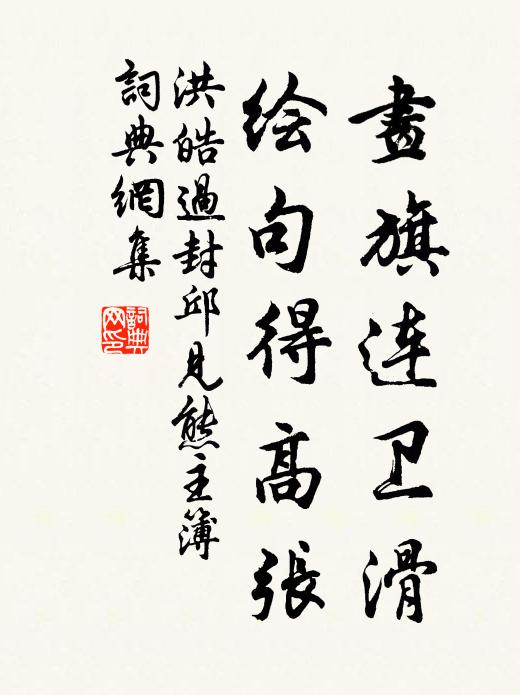 畫旗连卫滑
绘句得高張
洪皓過封邱見熊主簿
詞典網集
詞典网印